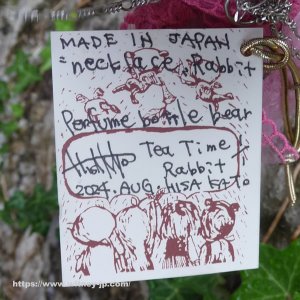 MADE IN JAPAN
"necklace, Rabbit
Perfume bottle bear
Tea Time
Rabbit
2024. AUG. HISA